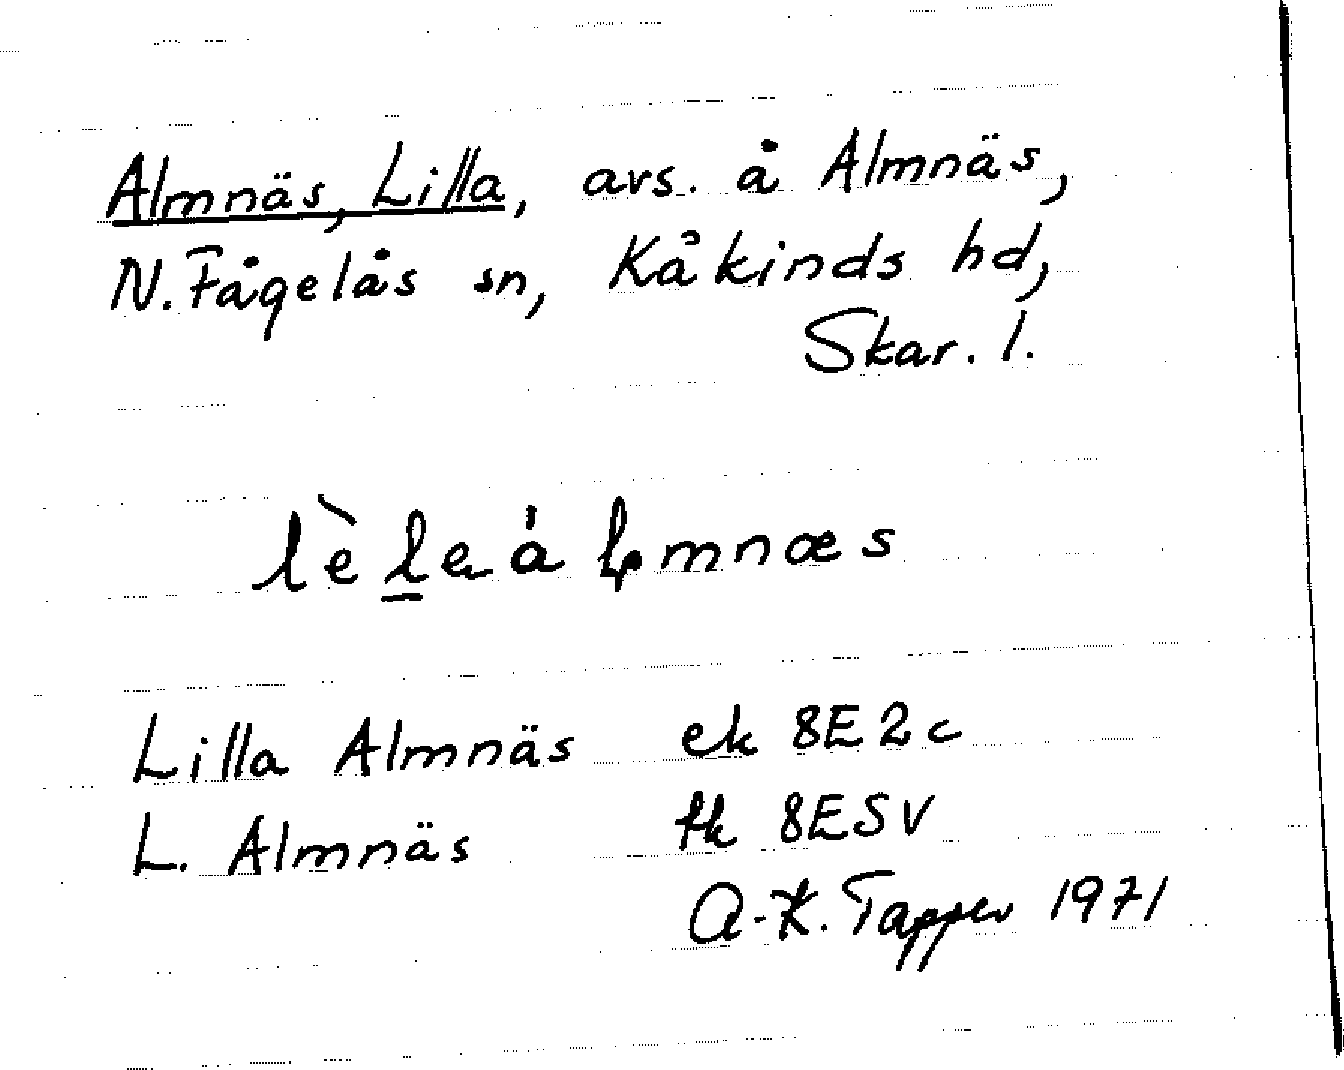 Almnäs, Lilla, avs. å Almnäs,
N. Fågelås sn, Kåkinds hd,
Skar. l.
Lilla Almnäs ek 8E2c
L. Almnäs tk 8ESV
A-K. Tapper 1971